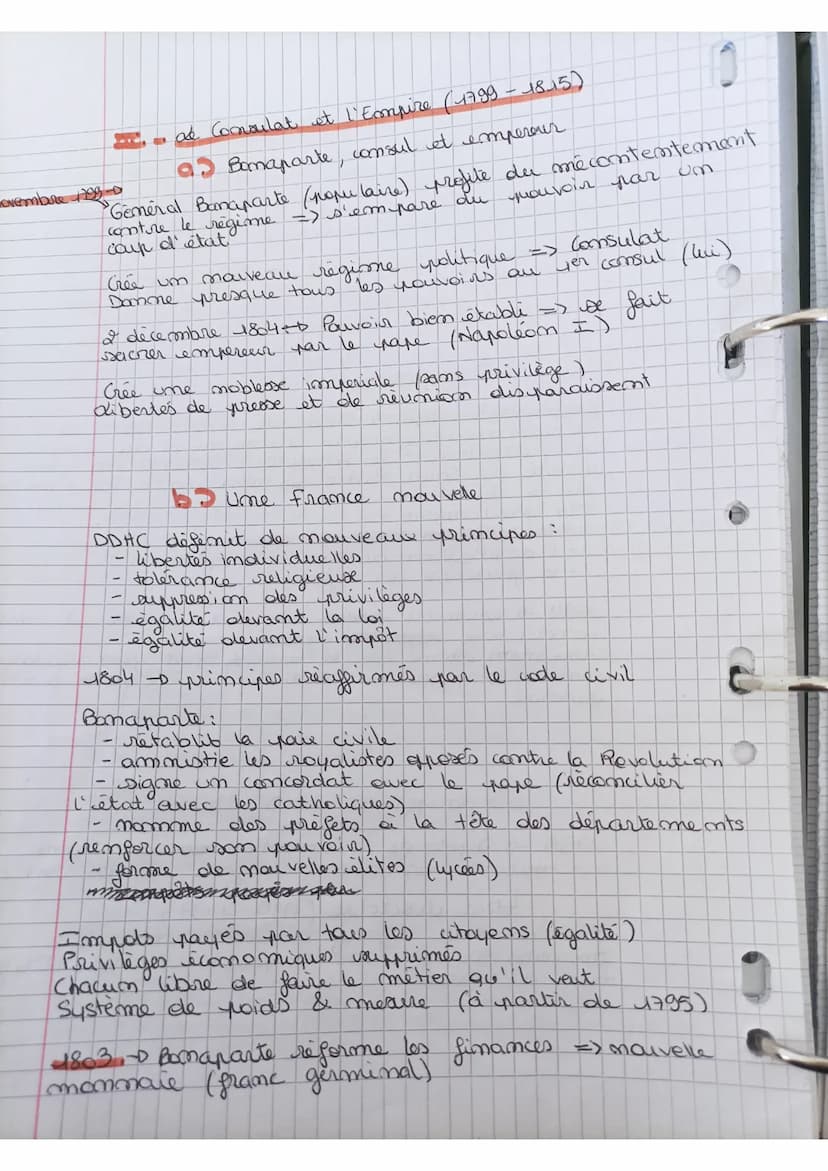 III. - Le Consulat et l'Empire (1799 - 1815)
a) Bonaparte, consul et empereur
ovembre 1799 →
Général Bonaparte (populaire) profite du mécontentement
contre le régime => s'empare du pouvoir par un
coup d'état
Crée un nouveau régime politique => Consulat
Donne presque tous les pouvoirs au 1er consul (lui)
2 décembre 1804 → Pouvoir bien établi => se fait
sacrer empereur par le pape (Napoléon I)
Crée une noblesse imperiale (sans privilège)
Libertés de presse et de réunion disparaissent
b) Une France nouvelle
DDHC définit de nouveaux principes :
- libertés individuelles
- tolérance religieuse
- suppression des privilèges
- égalité devant la loi
- égalité devant l'impôt
1804 → principes réaffirmés par le code civil
Bonaparte :
- rétablit la paix civile
- amnistie les royalistes opposés contre la Revolution
- signe un concordat avec le pape (réconcilier
l'état avec les catholiques)
- nomme des préfets à la tête des départements
(renforcer son pouvoir)
- forme de nouvelles élites (lycées)
Impots payés par tous les citoyens (égalité)
Privilèges économiques supprimés
Chacun libre de faire le métier qu'il veut
Système de poids & mesure (à partir de 1795)
1803 → Bonaparte réforme les finances => nouvelle
monnaie (franc germinal)